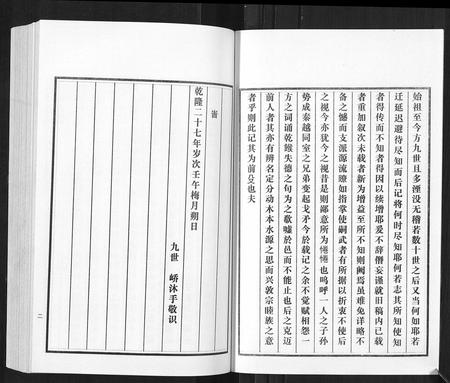 始祖至今方九世且多湮没无稽若数十世之后又当何如耶若
迁延迟避待尽知而后记将何时尽知耶何若志其所知使知
者得传而不知者得因以续增耶爰不辞僭妄谨就旧稿内已载
者重加叙次未载者新为增益至所不知则阙焉虽难免详略不
备之憾而支派源流瞭如指掌使嗣武者有所据以折衷不使后
之视今亦犹今之视昔是则鄙意所为惓惓也呜呼一人之子孙
势成秦越同室之兄弟变起戈矛今於载记之余不觉赋相怨一
方之词诵乾餱失德之句为之欷嘘於邑而不能止也后之克迈
前人者其亦有辨名定分动木本水源之思而兴敦宗睦族之意
者乎则此记其为前殳也夫
峕
乾隆二十七年岁次壬午梅月朔日
九世 峤沐手敬识
二